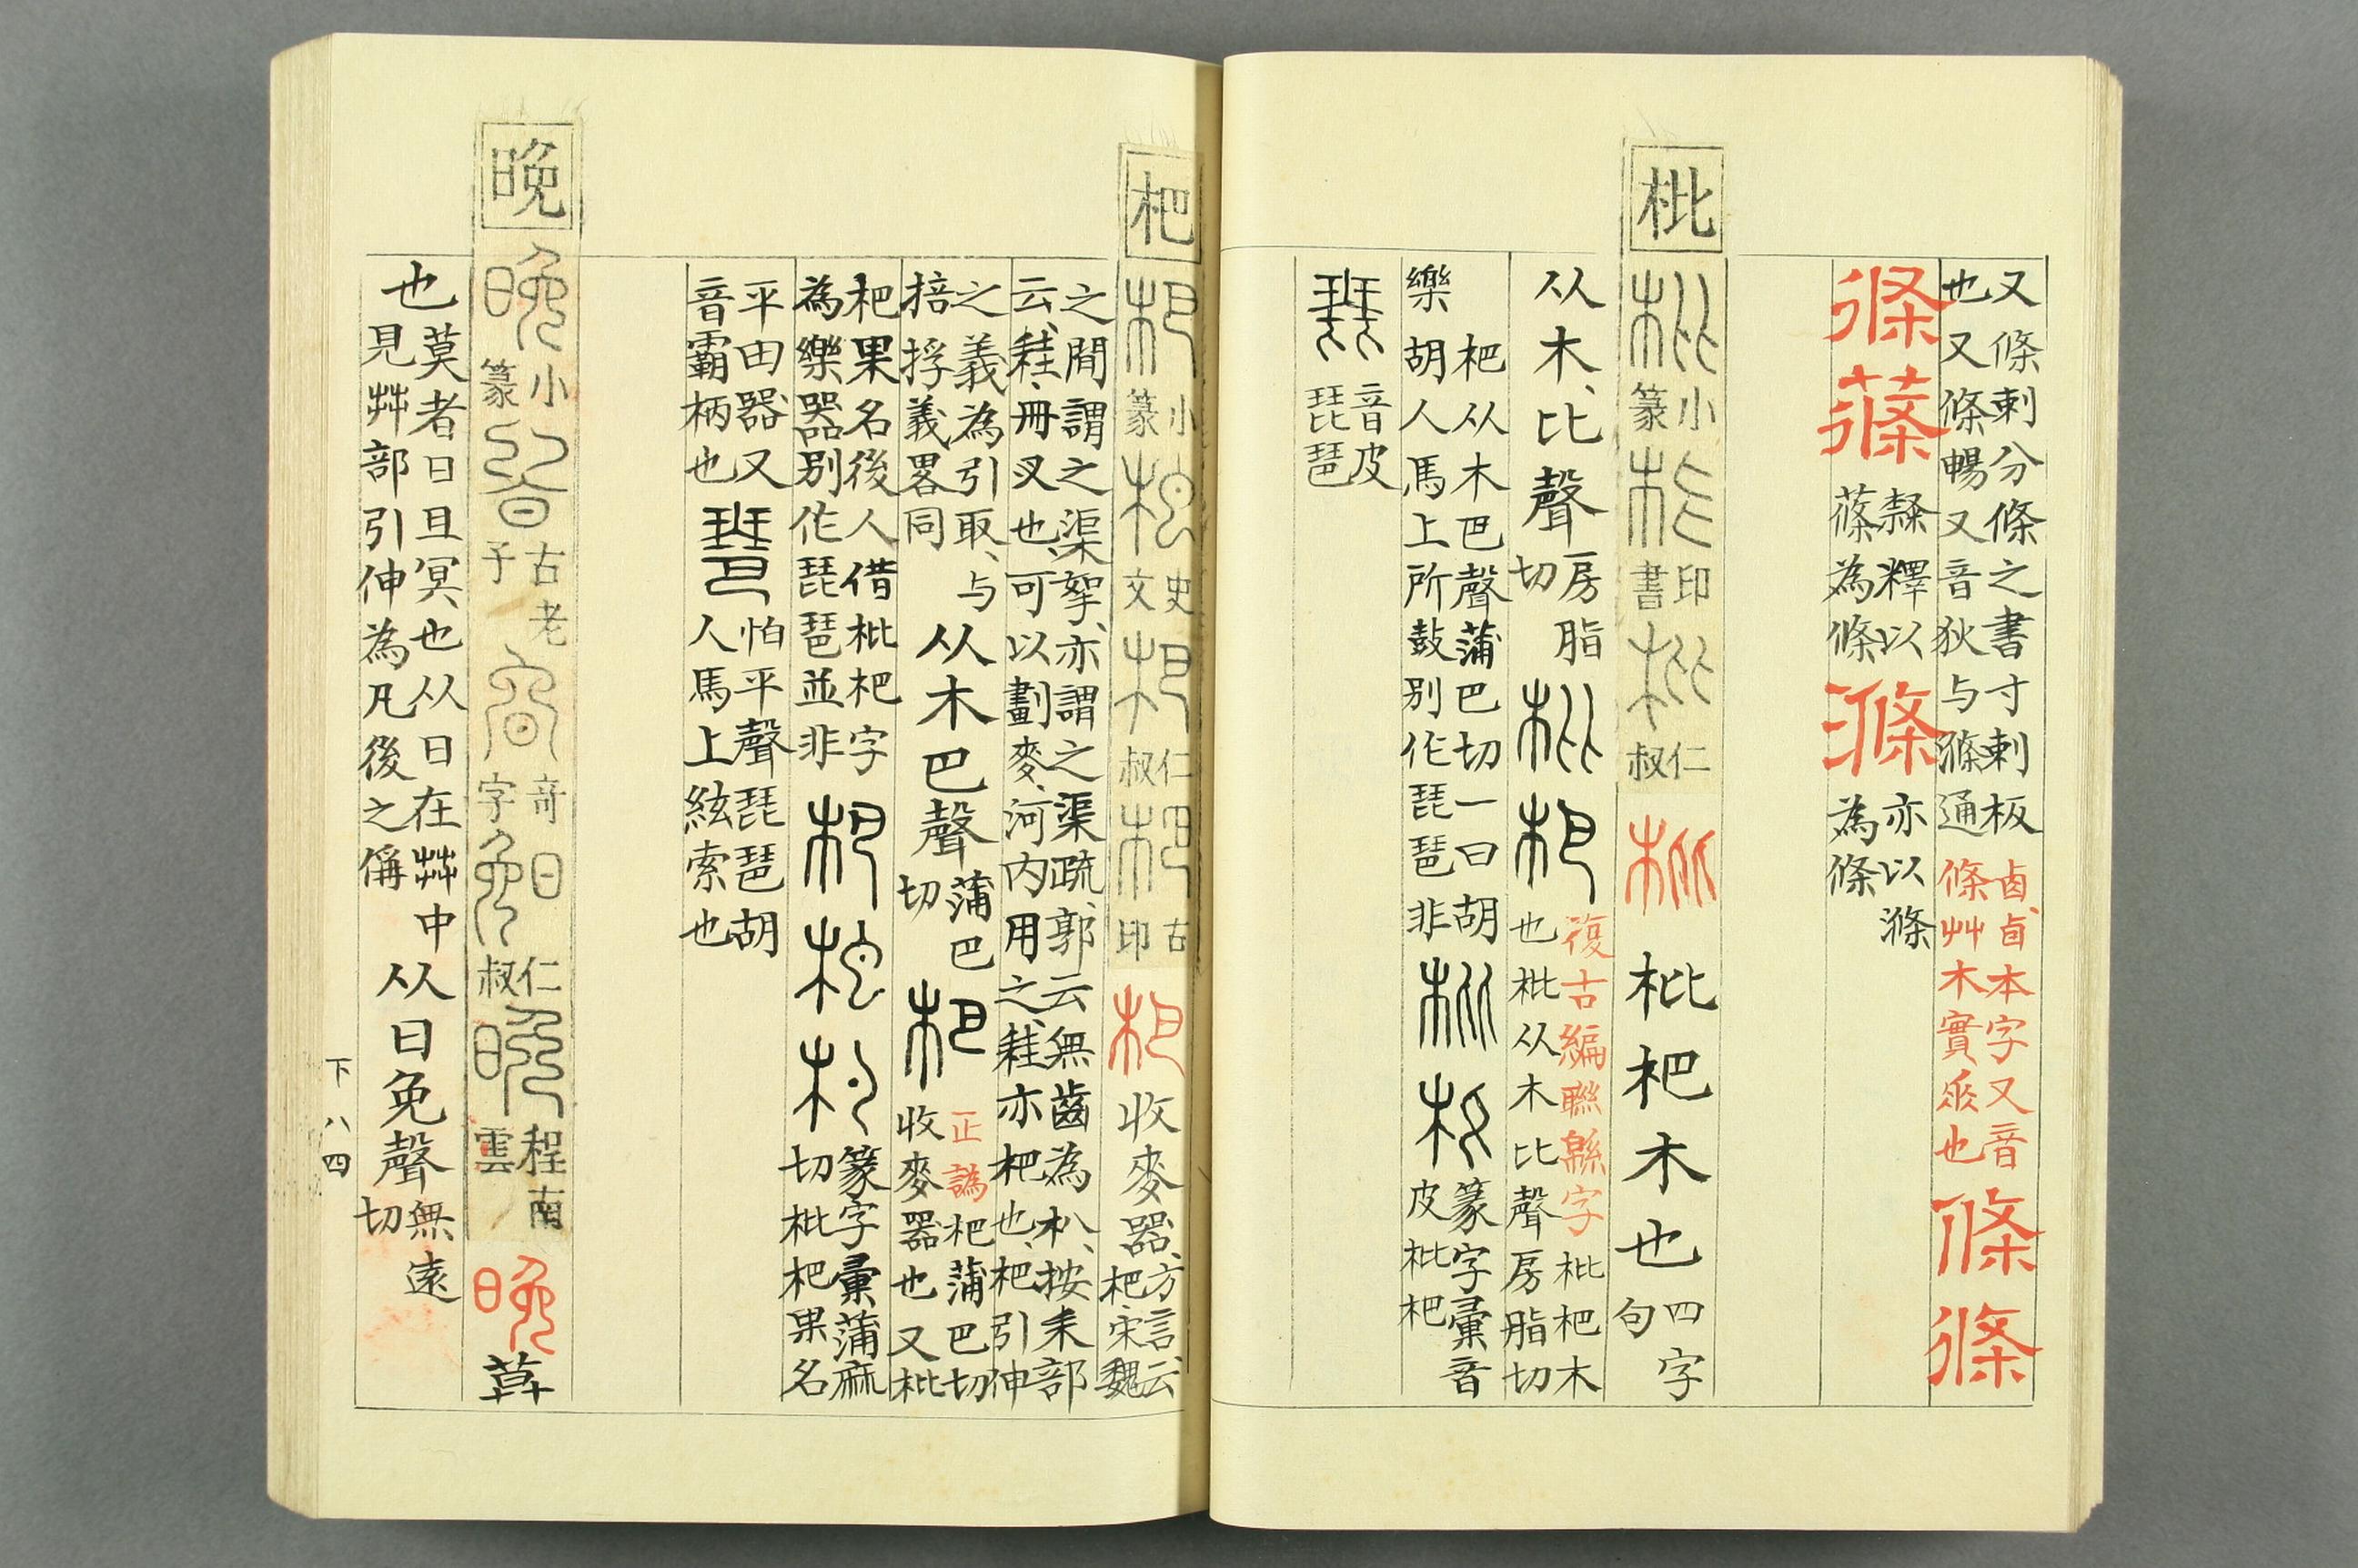 又條刺分條之書寸刺板
也又條暢又音狄与滌通
卤卣本字又音
條艸木實垂也
條
滌
蓧
隸釋以
蓧為條
滌
亦以滌
為條
枇
枇
小篆
枇
印書
枇
仁叔
枇
枇杷木也
四字句
从木比聲
房脂切
枇杷
復古編聯緜字
枇杷木
也枇从木比聲房脂切
杷从木巴聲蒲巴切一曰胡
樂胡人馬上所鼓別作琵琶非
篆字彙音
皮枇杷
音皮
琵琶
杷
杷
小篆
杷
史文
杷
仁叔
杷
古印
杷
收麥器
方言云
杷宋魏
之間謂之渠挐亦謂之渠疏郭云無齒為朳按耒部
云䎱冊叉也可以劃麥河内用之䎱亦杷也杷引伸
之義為引取与
掊捊義畧同
从木巴聲
蒲巴切
杷
正譌
杷蒲巴切
收麥器也又枇
杷果名後人借枇杷字
為樂器別作琵琶並非
杷
篆字彙蒲麻
切枇杷果名
平田器又
音霸柄也
琶
怕平聲琵琶胡
人馬上絃索也
晚
晚
小篆
古老子
奇字
仁叔
晚
程南雲
晚
莫
也
莫者日且冥也从日在茻中
見茻部引伸為凡後之偁
从日免聲
無遠切
下八四